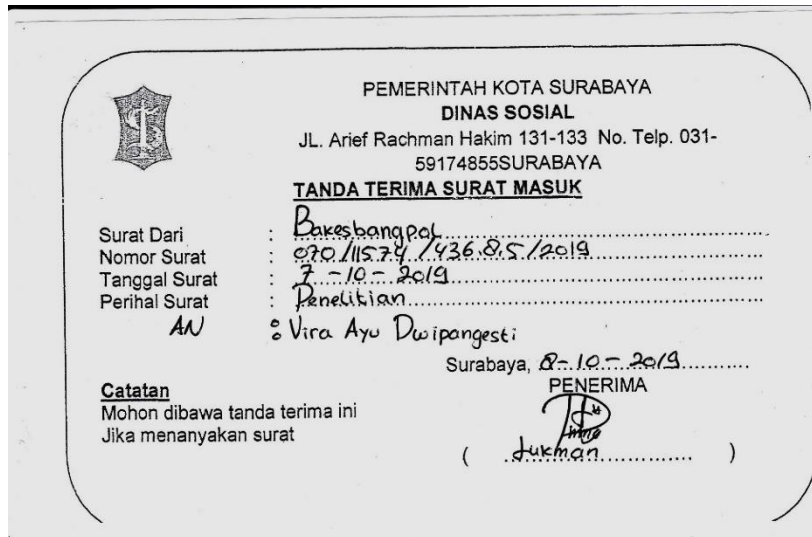 PEMERINTAH KOTA SURABAYA
DINAS SOSIAL
JL. Arief Rachman Hakim 131-133 No. Telp. 031-
59174855SURABAYA
TANDA TERIMA SURAT MASUK
Surat Dari : Bakesbangpol
Nomor Surat : 070/11574/436.8.5/2019
Tanggal Surat : 7-10-2019
Perihal Surat : Penelitian
AN : Vira Ayu Dwipangesti
Surabaya, 8-10-2019
PENERIMA
Catatan
Mohon dibawa tanda terima ini
Jika menanyakan surat
( Lukman )